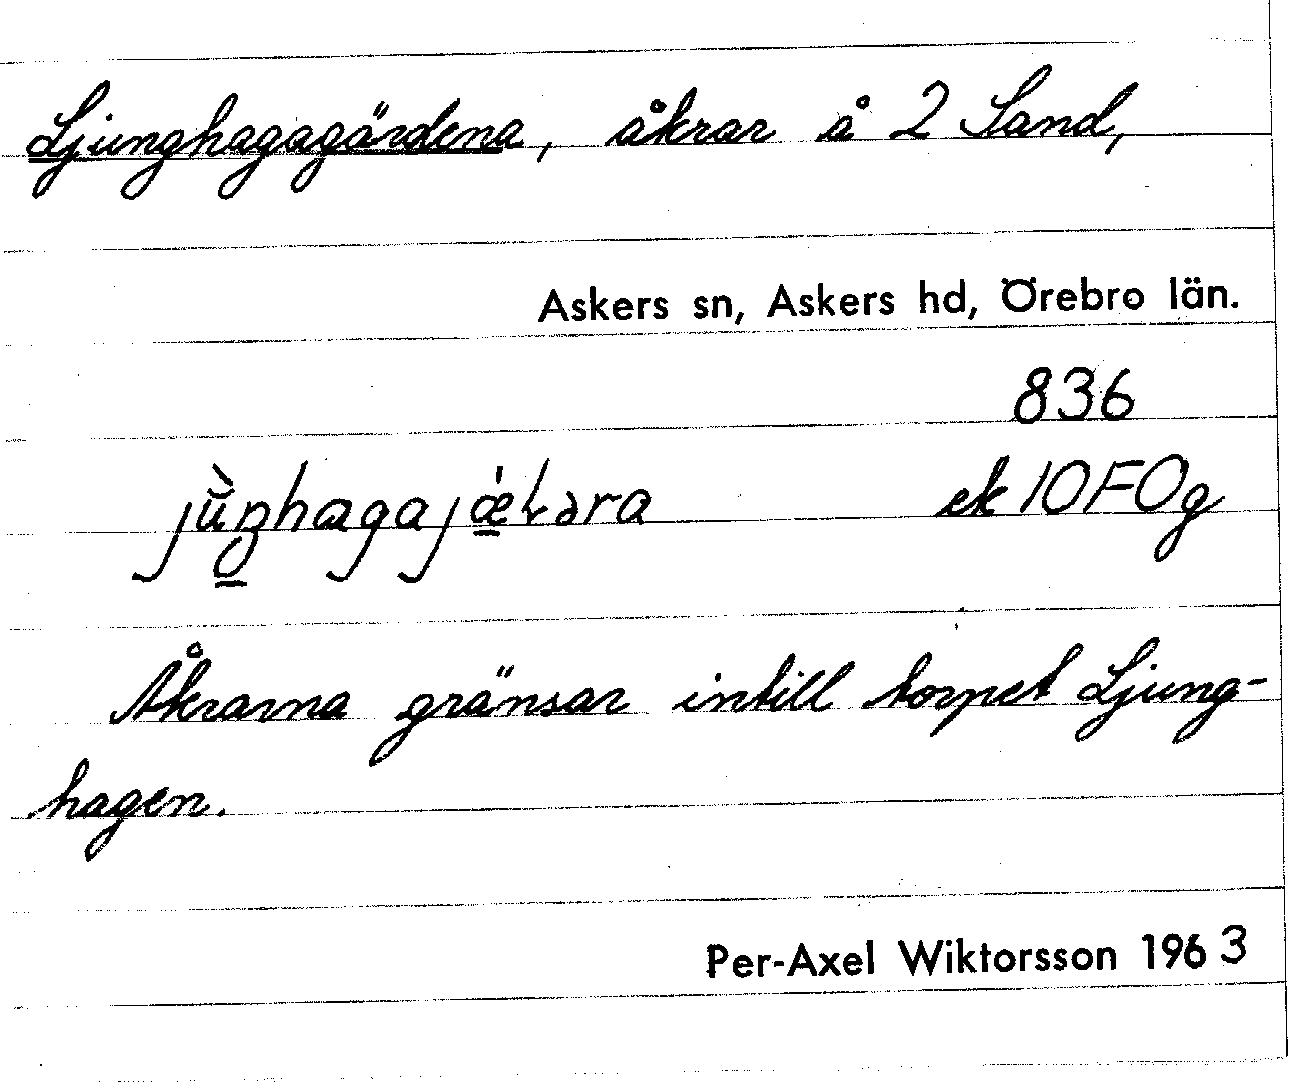 Ljunghagagärdena, åkrar å 2 Sand,
Askers sn, Askers hd, Örebro län.
836
ek 10FOg
Åkrarna gränsar intill torpet Ljung-
hagen.
Per-Axel Wiktorsson 1963